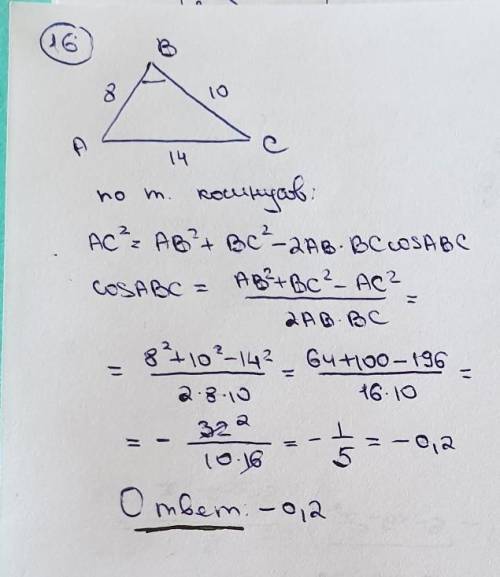 16
B
8 10
A C
14
по т. косинусов:
AC² = AB² + BC² - 2AB · BC cos ABC
cos ABC = (AB² + BC² - AC²) / (2AB · BC) =
= (8² + 10² - 14²) / (2 · 8 · 10) = (64 + 100 - 196) / (16 · 10) =
= - 32 2 / (10 · 16) = - 1/5 = -0,2
Ответ: -0,2